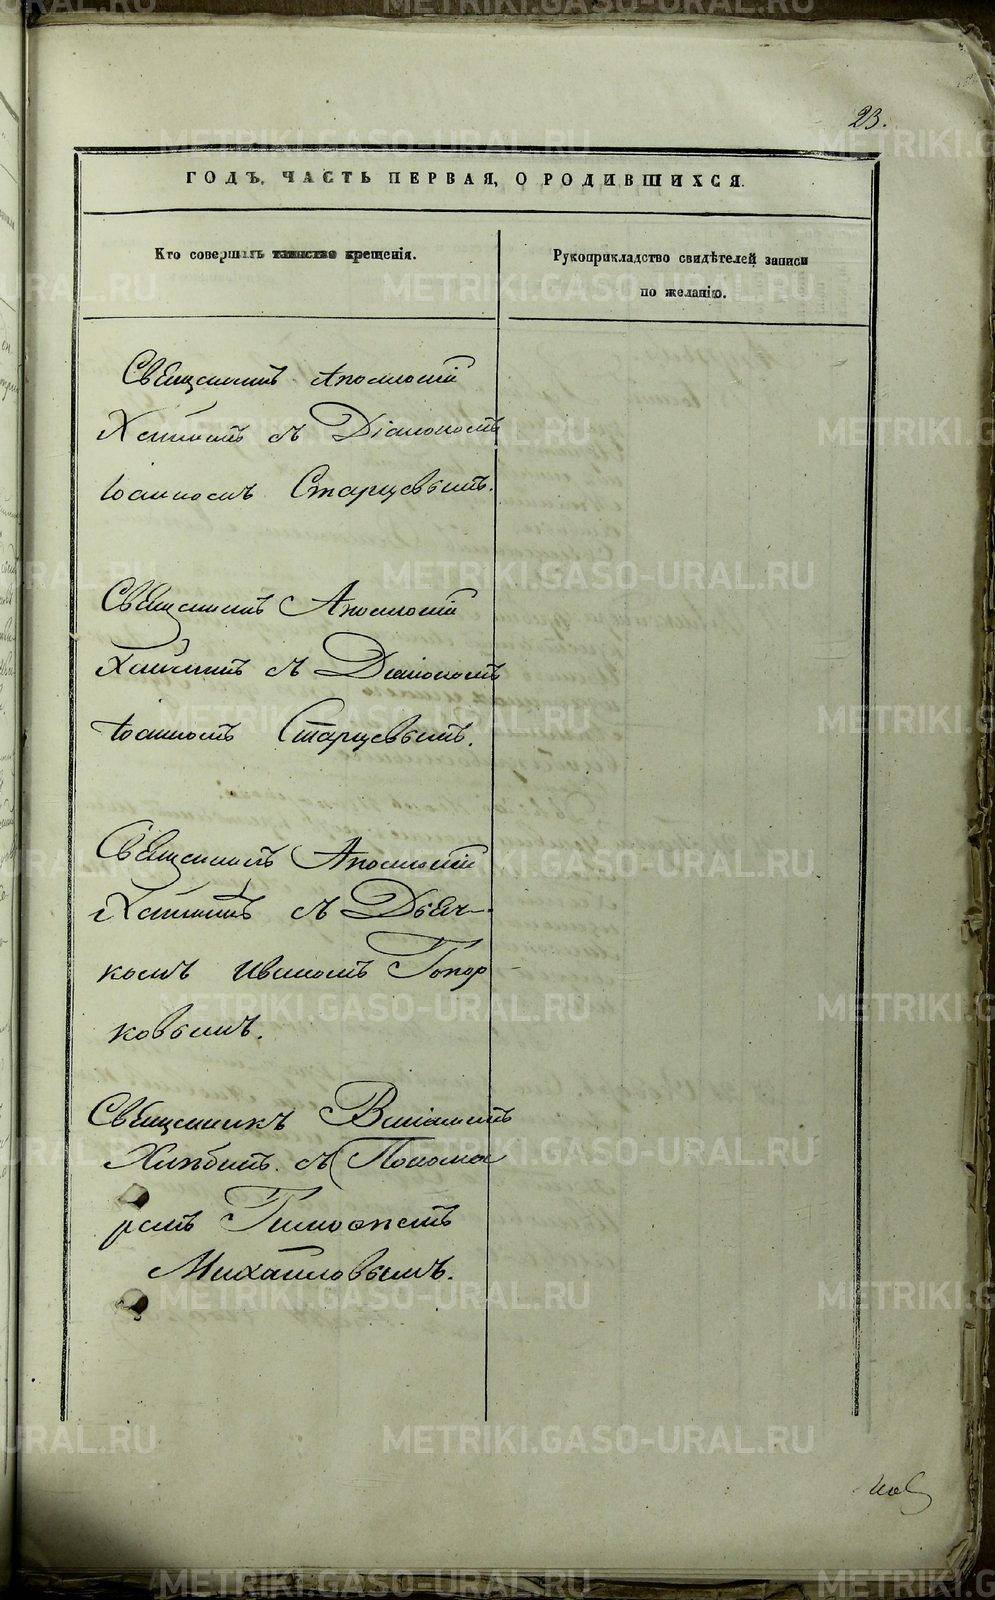 23.
ГОДЪ, ЧАСТЬ ПЕРВАЯ, О РОДИВШИХСЯ.
Кто совершалъ таинство крещенія.
Рукоприкладство свидѣтелей записи
по желанію.
Священникъ Аполлоній
съ Діакономъ
Іоанномъ Старцевымъ.
Священникъ Аполлоній
съ Діакономъ
Іоанномъ Старцевымъ.
Священникъ Аполлоній
съ Дьяч-
комъ Иваномъ Топор
ковымъ.
Священникъ
съ Понома
ремъ Тимофеемъ
Михайловымъ.
METRIKI.GASO-URAL.RU